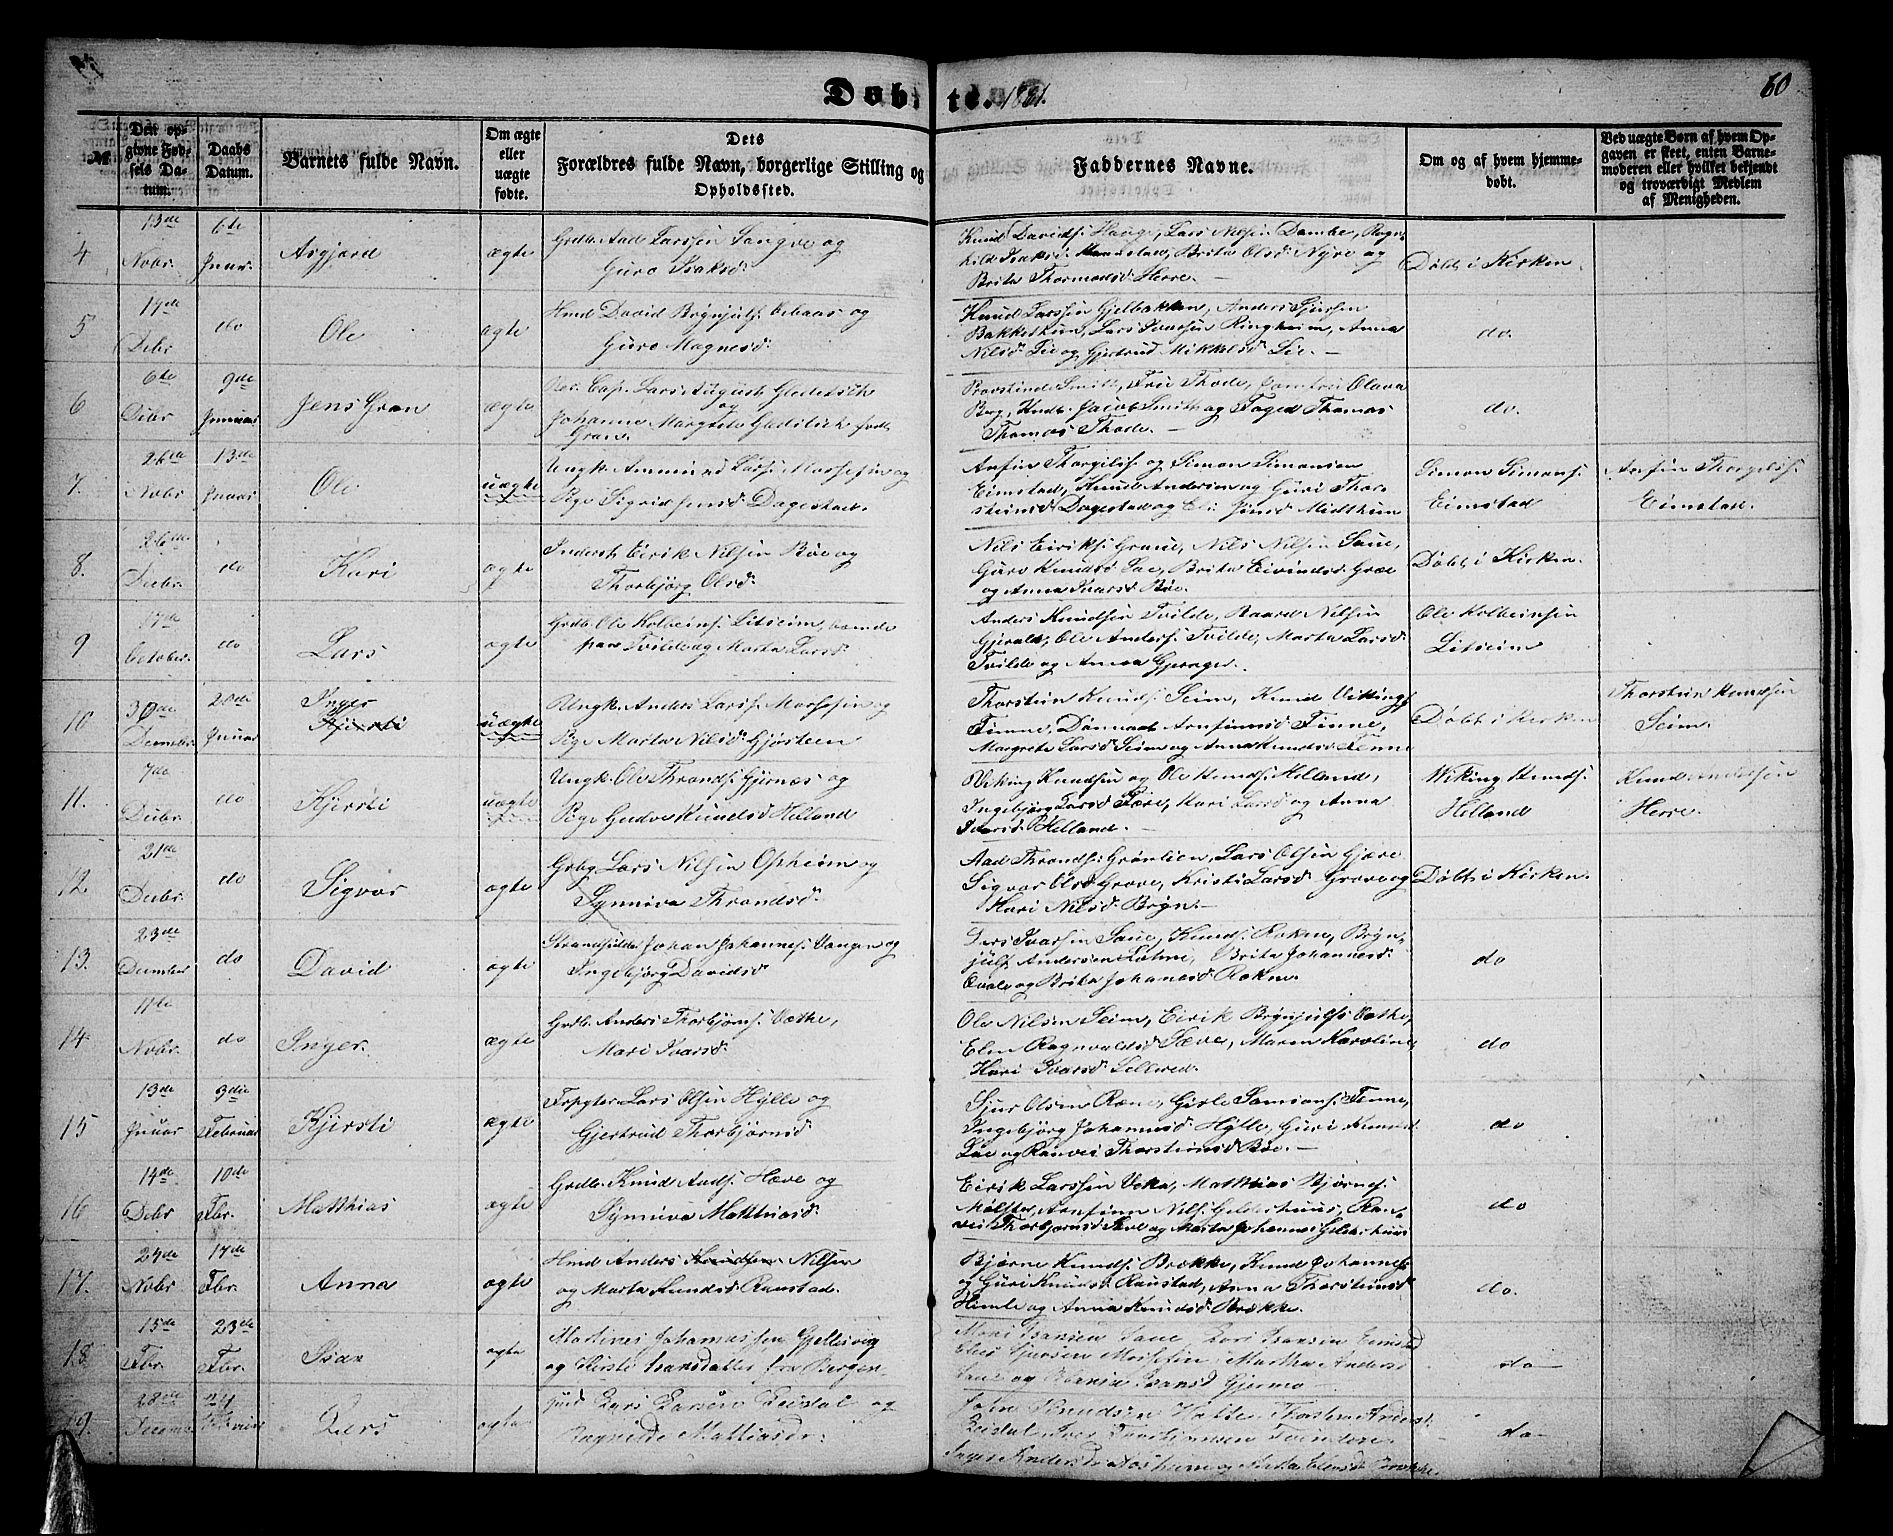 Døbte. 1861.
60
№
Den opgivne Fødsels Datum.
Daabs Datum.
Barnets fulde Navn.
Om ægte eller uægte fødte.
Dets Forældres fulde Navn, borgerlige Stilling og Opholdssted.
Faddernes Navne.
Om og af hvem hjemmedøbt.
Ved uægte Børn af hvem Opgaven er skeet, enten Barnemoderen eller hvilket bekjendt og troværdigt Medlem af Menigheden.
4
13de Nobr.
6te Januar.
Asgjerd
ægte
Grdb. Aad Larssen Sangve og
Guro Isaksd.
Knud Davids. Hauge, Lars Nils.
Brita Olsd. Nyre og
Brita Thormodsd. Herre.
Døbt i Kirken.
5
17de Debr
do
Ole
ægte
Hmd David Brynjuls. og
Guro Magnesd.
Knud Larssen Gjelbakken, Anders Sjursen
Bakkethun, Lars Ivarsen Ringheim, Anna
Nilsd. Lie og Gjertrud Mikkelsd. Lie.
do.
6
6te Debr
9de Januar
Jens Gran
ægte
Cap. Lars August Gleditsch
og
Johanne Margrete Gleditsch født
Gran.
Provstinde Smitt, Frue Thode, Olava
Berg, Jacob Smith og Foged Thomas
Thomas Thode.
do.
7.
26de Nobr
13de Januar
Ole
uægte
Ungk. Ammund Lars. og
Pige Sigrid Jensd. Dagestad.
Arfin Thorgils. og Simon Simonsen
Eimstad, Knud Andersen og Guri Thorsteinsd. Dagestad og Eli Jensd. Midthun
Simon Simons.
Eimstad
Arfin Thorgils.
Eimstad.
8.
26de Decbr.
do
Kari
ægte
Inderst Eirik Nilsen Bøe og
Thorbjørg Olsd.
Nils Eiriks. Graue, Nils Nilsen Saue,
Guro Knudsd. Lae, Brita Eivindsd. Græe
og Anna Ivarsd. Bøe.
Døbt i Kirken.
9
17de October.
do
Lars
ægte
Grdb. Ole Kolbeins. Litseim,
paa Tvilde og Marta Larsd.
Anders Knudsen Tvilde, Baard Nilsen
Gjerald, Ole Anders. Tvilde, Marta Larsd.
Tvilde og Anna Gjerager.
Ole Kolbeinsen
Litseim
10
30de December.
20de Januar
Inger
Kjersti
uægte
Ungk. Anders Lars. og
Pige Marta Nilsd. Gjøsteen
Thorstein Knuds. Seim, Knud Vikings.
Finne, Arnfinnsd. Finne,
Margrete Larsd. Seim og Anna Knudsd. Finne
Døbt i Kirken
Thorstein Knudsen
Seim.
11.
7de Decbr.
do
Kjersti
uægte
Ungk. Ole Thrond. Gjernæs og
Pige Gudve Knudsd. Helland
Viking Knudsen og Ole Knuds. Helland,
Ingebjørg Larsd. Kari Larsd. og Anna
Ivarsd. Helland.
Wiking Knuds.
Helland
Herre.
12
21de Decbr.
do
Sigvor
ægte
Grbg Lars Nilsen Opheim og
Synniva Throndsd.
Aad Thronds. Grønlien, Lars Olsen Gjære
Sigvor Olsd. Grove, Kristi Larsd. Grove og
Kari Nilsd. Bryn.
Døbt i Kirken.
13.
23de December
do
David
ægte
Strandsidder Johan Johannes. Vangen og
Ingebjørg Davidsd
Ders Ivarsen Saue, Knud. Rokne, Brynjulf Andersen Lohne, Brita Johannesd.
Qvale og Brita Johanesd. Rokne.
do
14
11te Nobr.
do
Inger.
ægte
Grdb. Anders Thorbjørns. Væthe,
Mari Ivarsd.
Ole Nilsen Seim, Eirik Brynjulfs. Væthe,
Elen Ragnvaldsd. Sæve, Maren Karoline,
Kari Ivarsd. Lellered.
do
15
13de Januar
3die Februar
Kjersti
ægte
Forpgter Lars Olsen Hylle og
Gjertrud Thorbjørnsd.
Sjur Olsen Ræne, Gisle Samsons. Finne,
Ingebjørg Johannesd. Hylle, Guri Knudsd.
Lae og Ranvei Thorsteinsd. Bøe.
do
16
14de Debr
10de Fbr.
Matthias
ægte
Grdb. Knud Aads. Hæve og
Synniva Matthiasd.
Eirik Larssen Veka, Matthias Bjørnes.
Mølster, Arnfinn Nils. Gjelderhuus, Ranvei Thorbjørnsd. og Marta Johannes. Gjelderhuus
do
17.
24de Nobr
17de Fbr.
Anna
ægte
Hmd Anders Knudsen Nilsen
og Marta Knudsd. Raustad.
Bjørne Knuds. Brække, Knud Johannes.
og Guri Knudsd. Raustad, Anna Thorsteinsd.
Himle og Anna Knudsd. Brække.
do.
18
15de Fbr.
23de Fbr.
Isak
ægte
Martines Johannessen Gjellesvig
og Kirsti Ivarsdatter fra Bergen
Moni Ivarsen Saue,
Sjursen Martha Anders.
Saue og Ivarsd Gjerme
do
19.
28de Decembr
24 Februar
Ders
ægte
Lars Larsen Reisdal og
Ragnilde Mattiasdr.
John Knudsen Thorsten Anders.
do